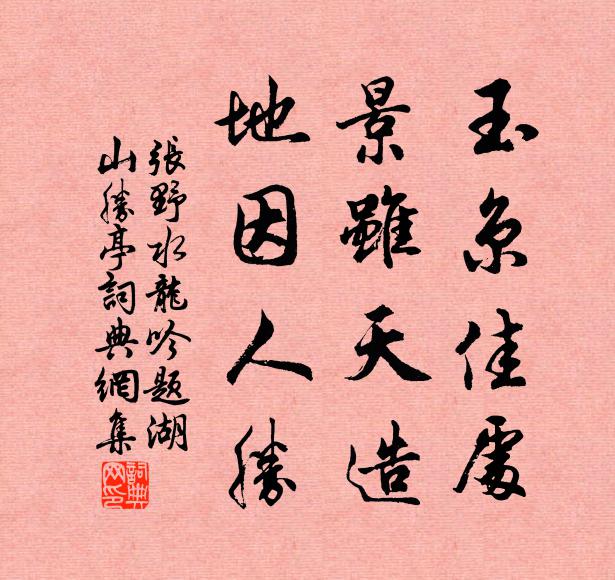 玉京佳處
景雖天造
地因人勝
張野水龍吟题湖
山勝亭詞典網集
詞典网印